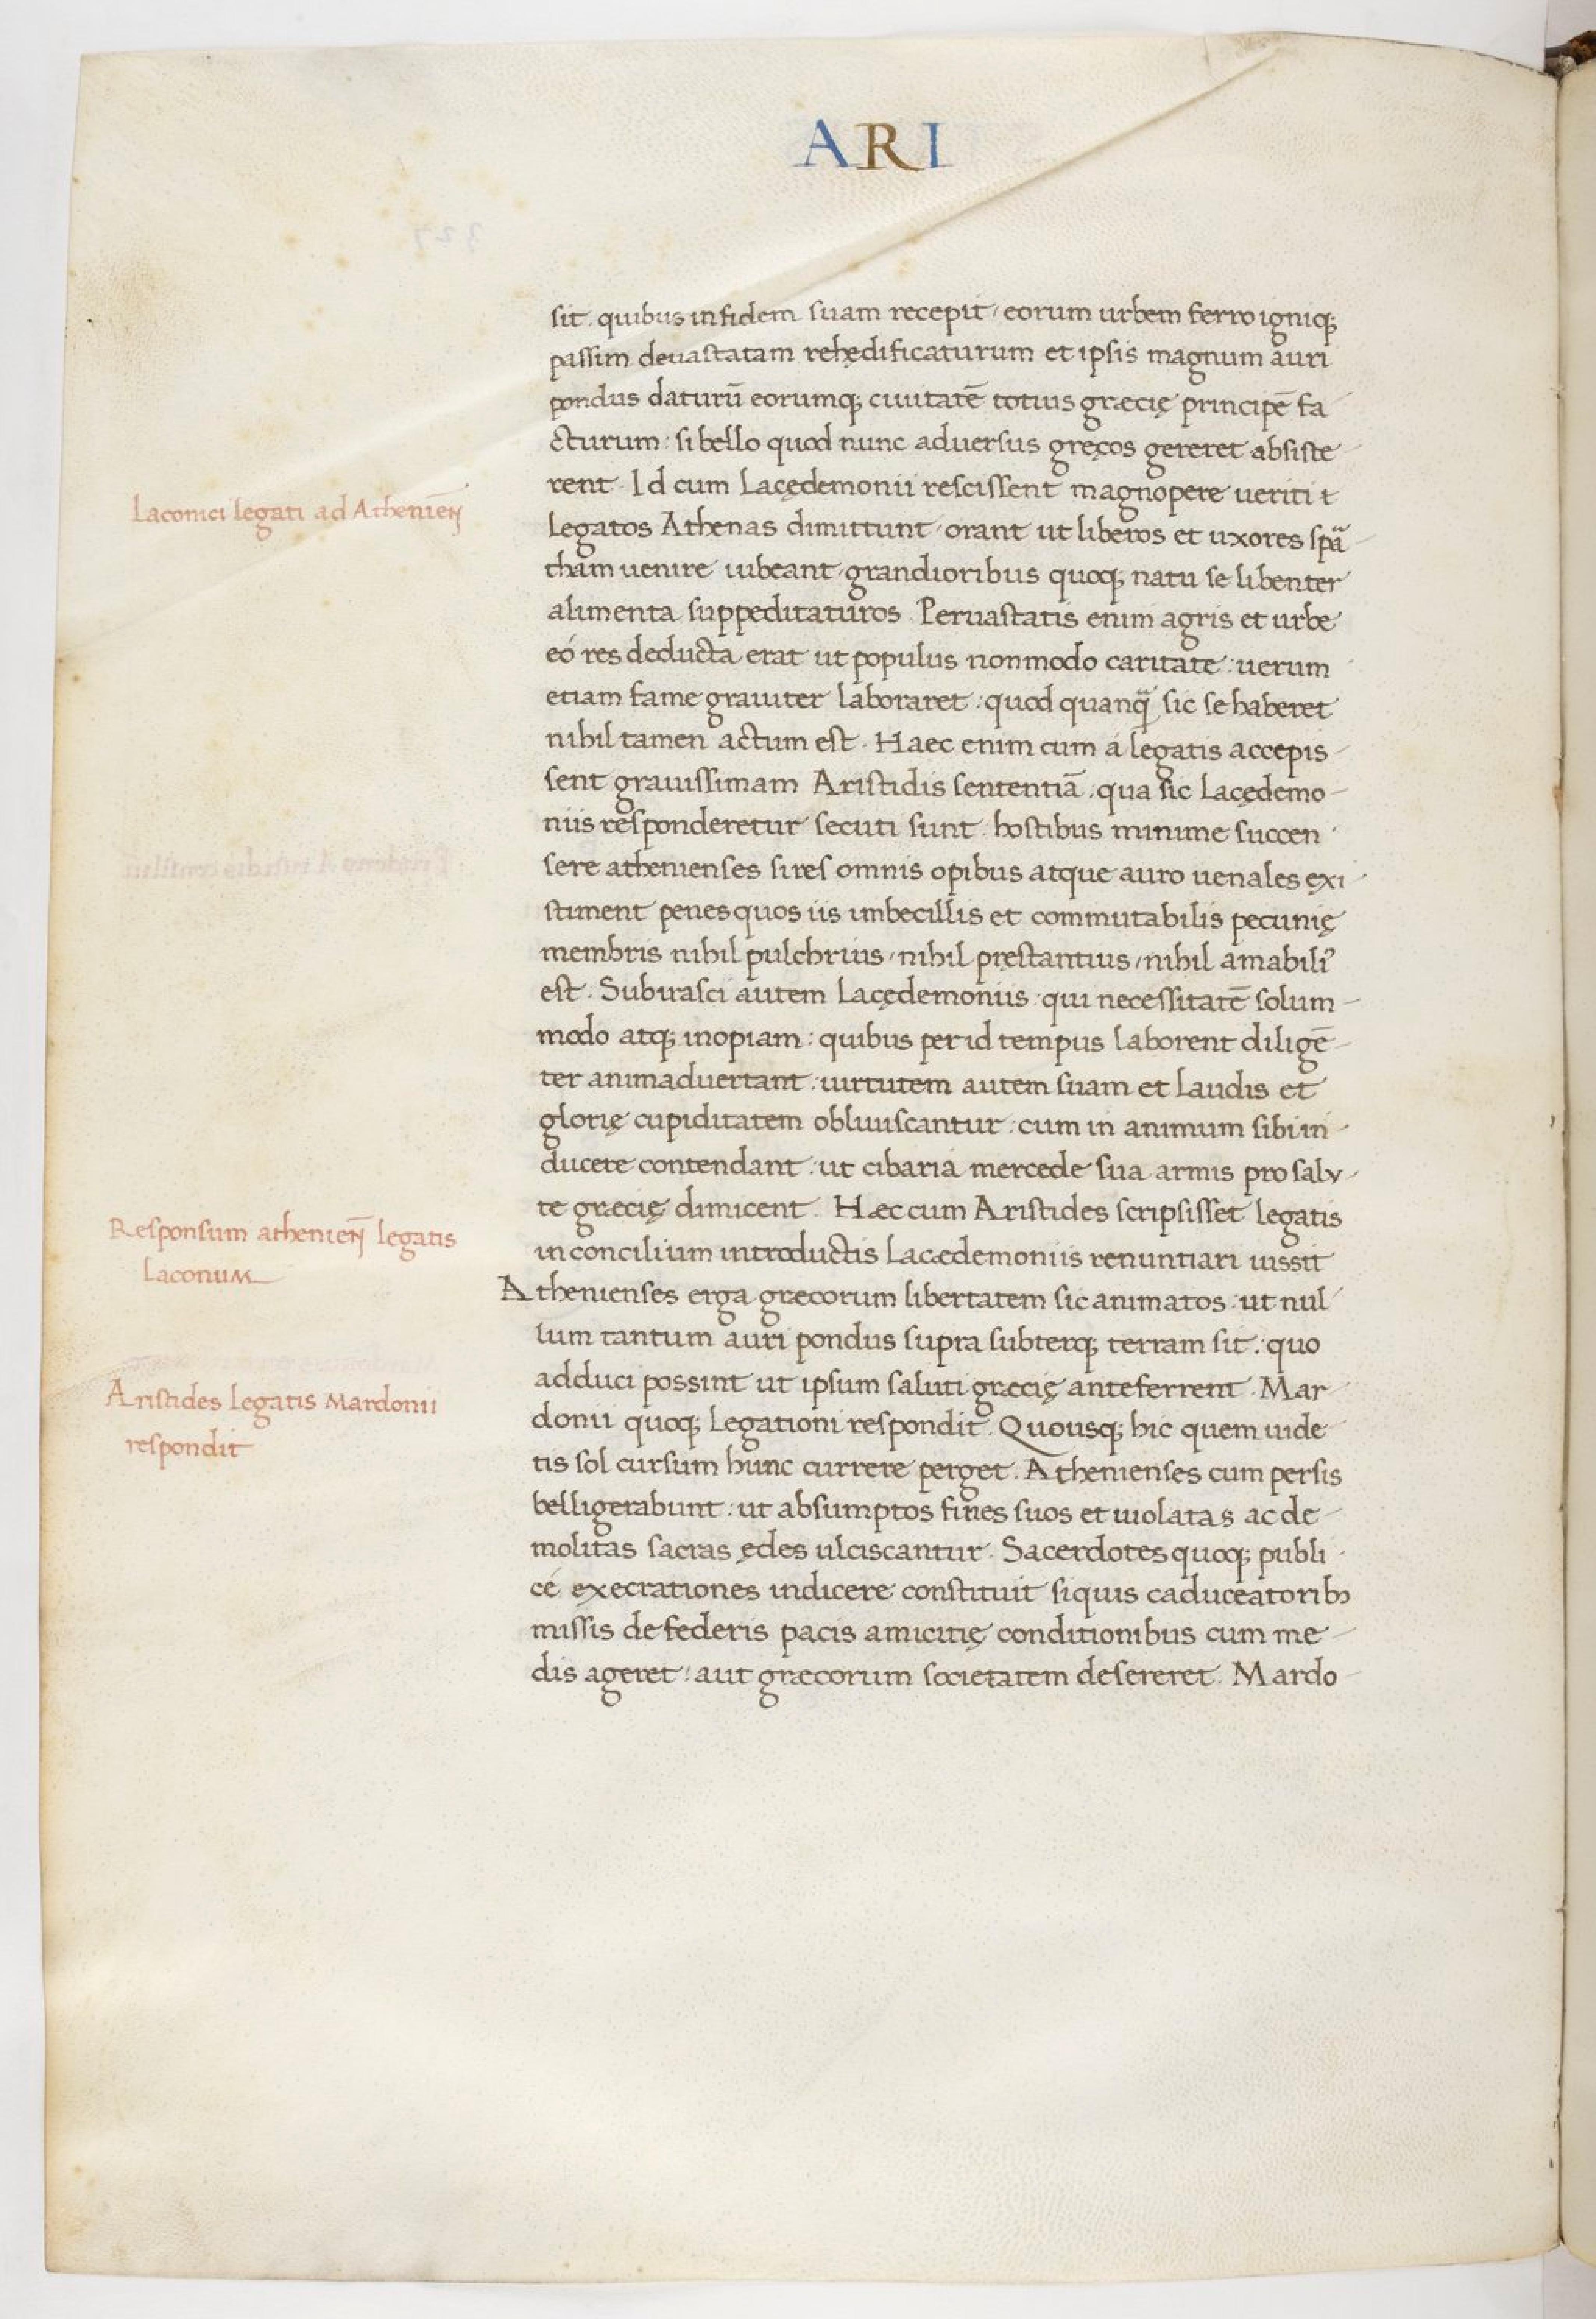 ARI
sit. quibus in fidem suam recepit, eorum urbem ferro igniq;
passim deuastatam rehędificaturum et ipsis magnum auri
pondus daturū eorumq; ciuitatē totius græcię principē fa
cturum: si bello quod nunc aduersus gręcos gereret absiste-
rent. Id cum Lacędemonii rescissent magnopere ueriti
Laconici legati ad Athenien̄
Legatos Athenas dimittunt, orant ut liberos et uxores spā-
tham uenire iubeant, grandioribus quoq; natu se libenter
alimenta suppeditaturos. Peruastatis enim agris et urbe
eó res deducta erat ut populus non modo caritate: uerum
etiam fame grauiter laboraret: quod quanq̄ sic se haberet
nihil tamen actum est. Haec enim cum á legatis accepis-
sent grauissimam Aristidis sententiā, qua sic Lacędemo-
niis responderetur secuti sunt. hostibus minime succen
sere athenienses si res omnis opibus atque auro uenales exi-
stiment penes quos iis imbecillis et commutabilis pecunię
membris nihil pulchrius, nihil pręstantius, nihil amabili⁹
est. Subirasci autem Lacędemoniis qui necessitatē solum-
modo atq; inopiam: quibus per id tempus laborent diligē-
ter animaduertant: uirtutem autem suam et laudis et
glorię cupiditatem obliuiscantur: cum in animum sibi in-
ducere contendant: ut cibaria mercede sua armis pro salu-
te græcię dimicent. Hæc cum Aristides scripsisset legatis
Responsum athenien̄ legatis
Laconum
in concilium introductis Lacædemoniis renuntiari iussit
Athenienses erga græcorum libertatem sic animatos: ut nul-
lum tantum auri pondus supra subterq; terram sit: quo
adduci possint ut ipsum saluti græcię anteferrent. Mar-
Aristides legatis Mardonii
respondit
donii quoq; Legationi respondit. Quousq; hic quem uide-
tis sol cursum hunc currere perget. Athenienses cum persis
belligerabunt: ut absumptos fines suos et uiolatas ac de-
molitas sacras ędes ulciscantur. Sacerdotes quoq; publi-
cé execrationes indicere constituit siquis caduceatorib;
missis de federis pacis amicitię conditionibus cum me-
dis ageret: aut græcorum societatem desereret. Mardo-